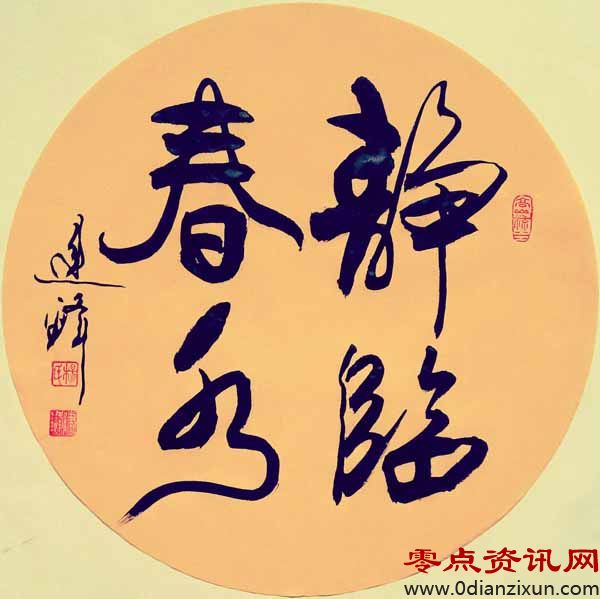 静临
春水
零点资讯网
www.0dianzixun.com